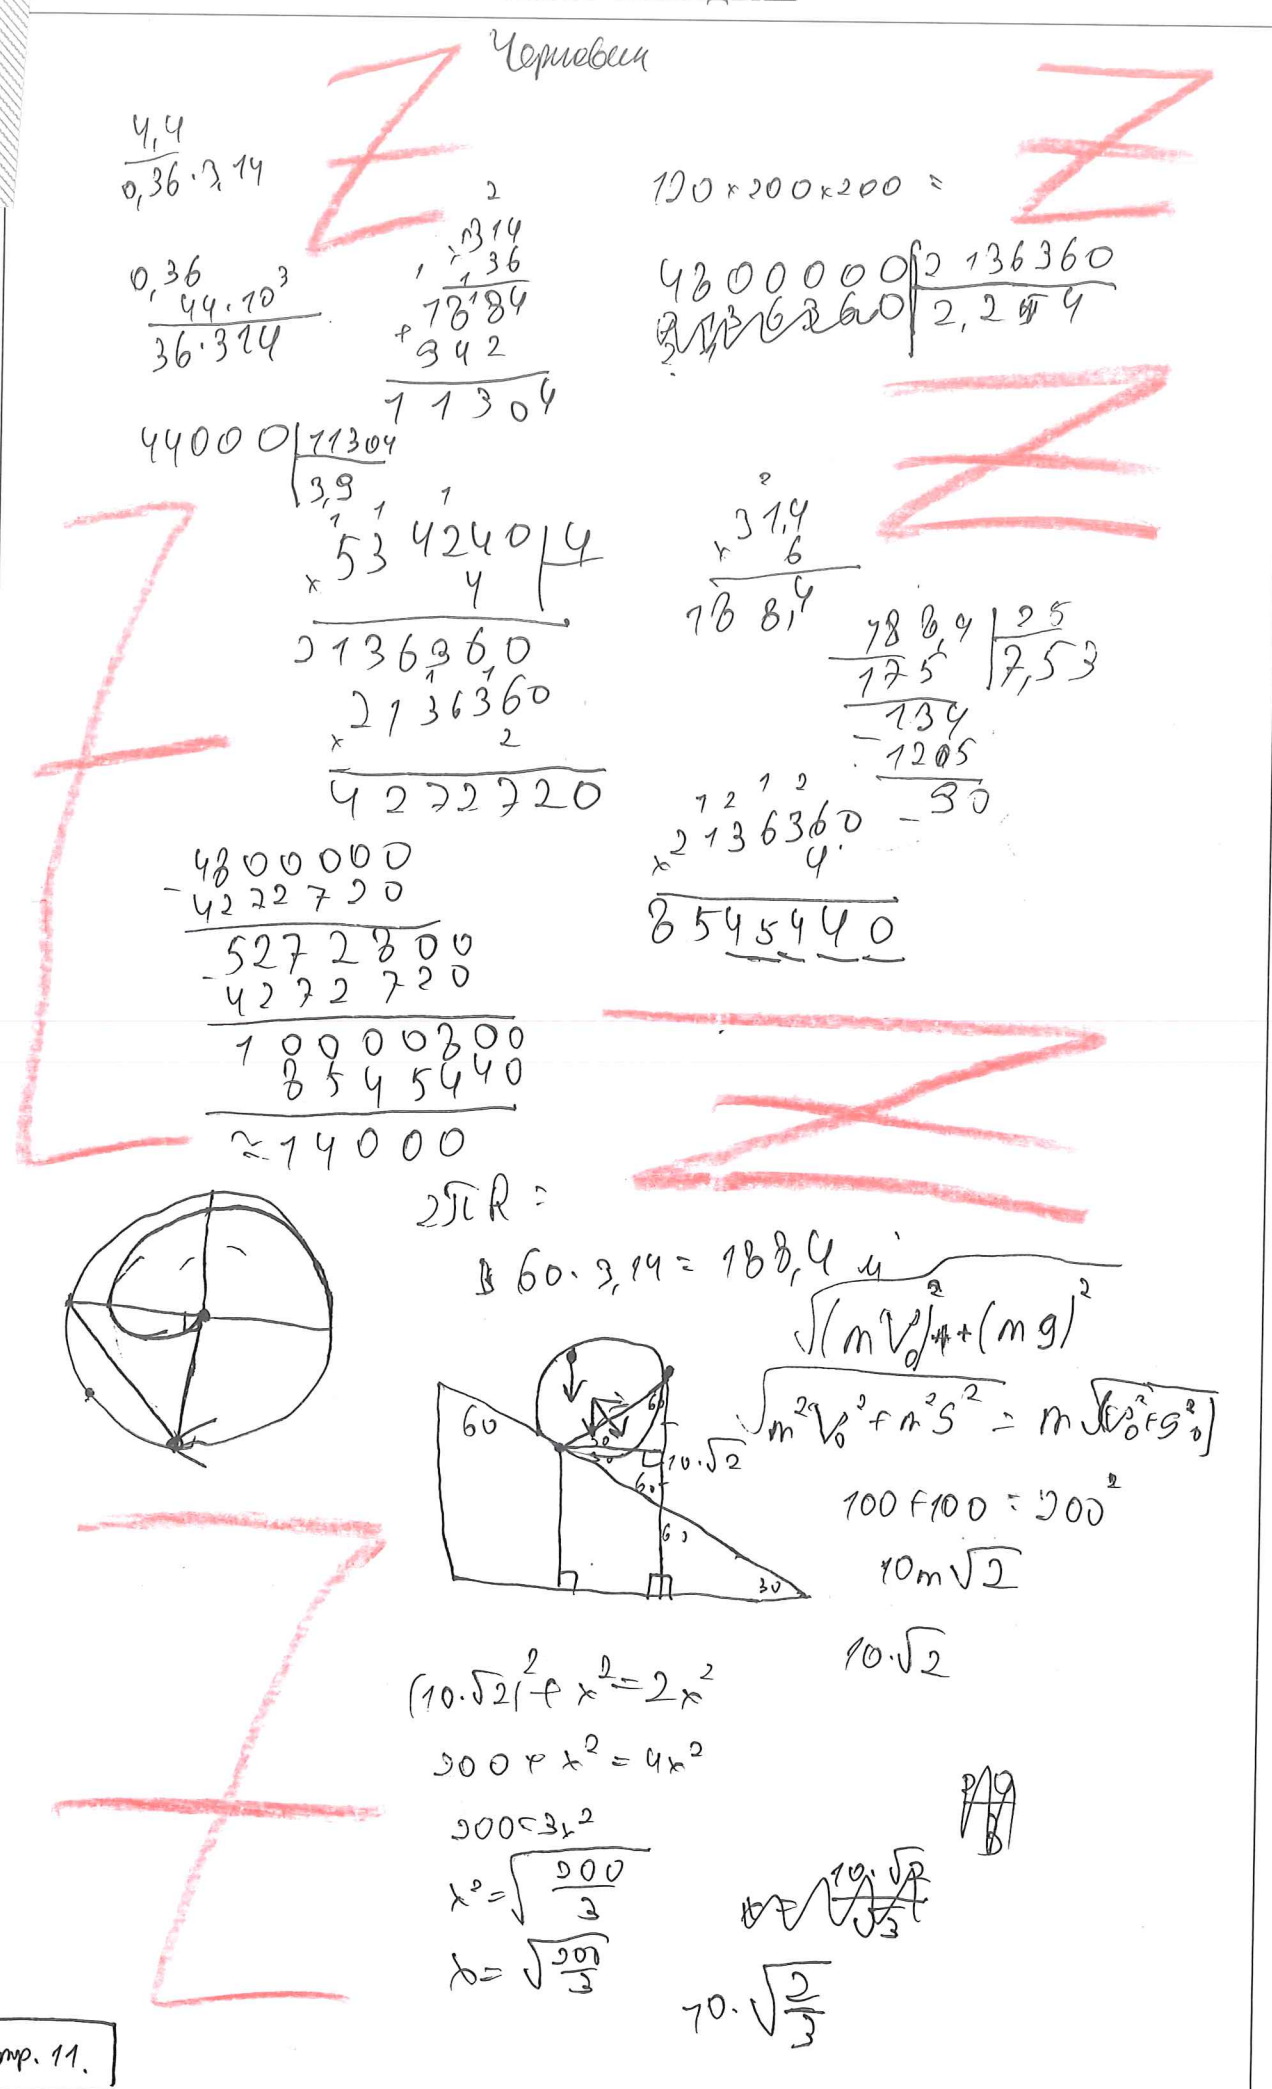 Черновик
4,4
0,36·3,14
120×200×200=
2
×314
36
1884
+
942
11304
0,36
44·10³
36·314
4800000 2136360
2,2
44000 11304
3,9
1 1 1
×534240 4
4
2136960
2136360
× 2
4272720
2
×31,4
6
188,4
188,4 25
175 7,53
-134
-1205
-90
1 2 1 2
×2136360
4
8545440
4800000
-4272720
5272800
-4272720
10000800
8545440
≈14000
2πR=
60·3,14=188,4 м
√(mV₀)²+(mg)²
√m²V₀²+m²g² = m√(V₀²+g²)
60
60
30
10·√2
60
60
30
100+100=200²
10m√2
10·√2
(10·√2)²+x²=2x²
200+x²=4x²
200=3x²
x²=√200/3
x=√200/3
10·√2/3
стр. 11.